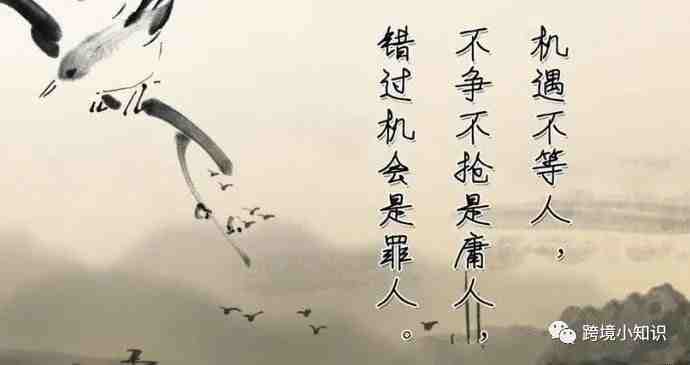 机遇不等人，
不争不抢是庸人，
错过机会是罪人。
跨境小知识